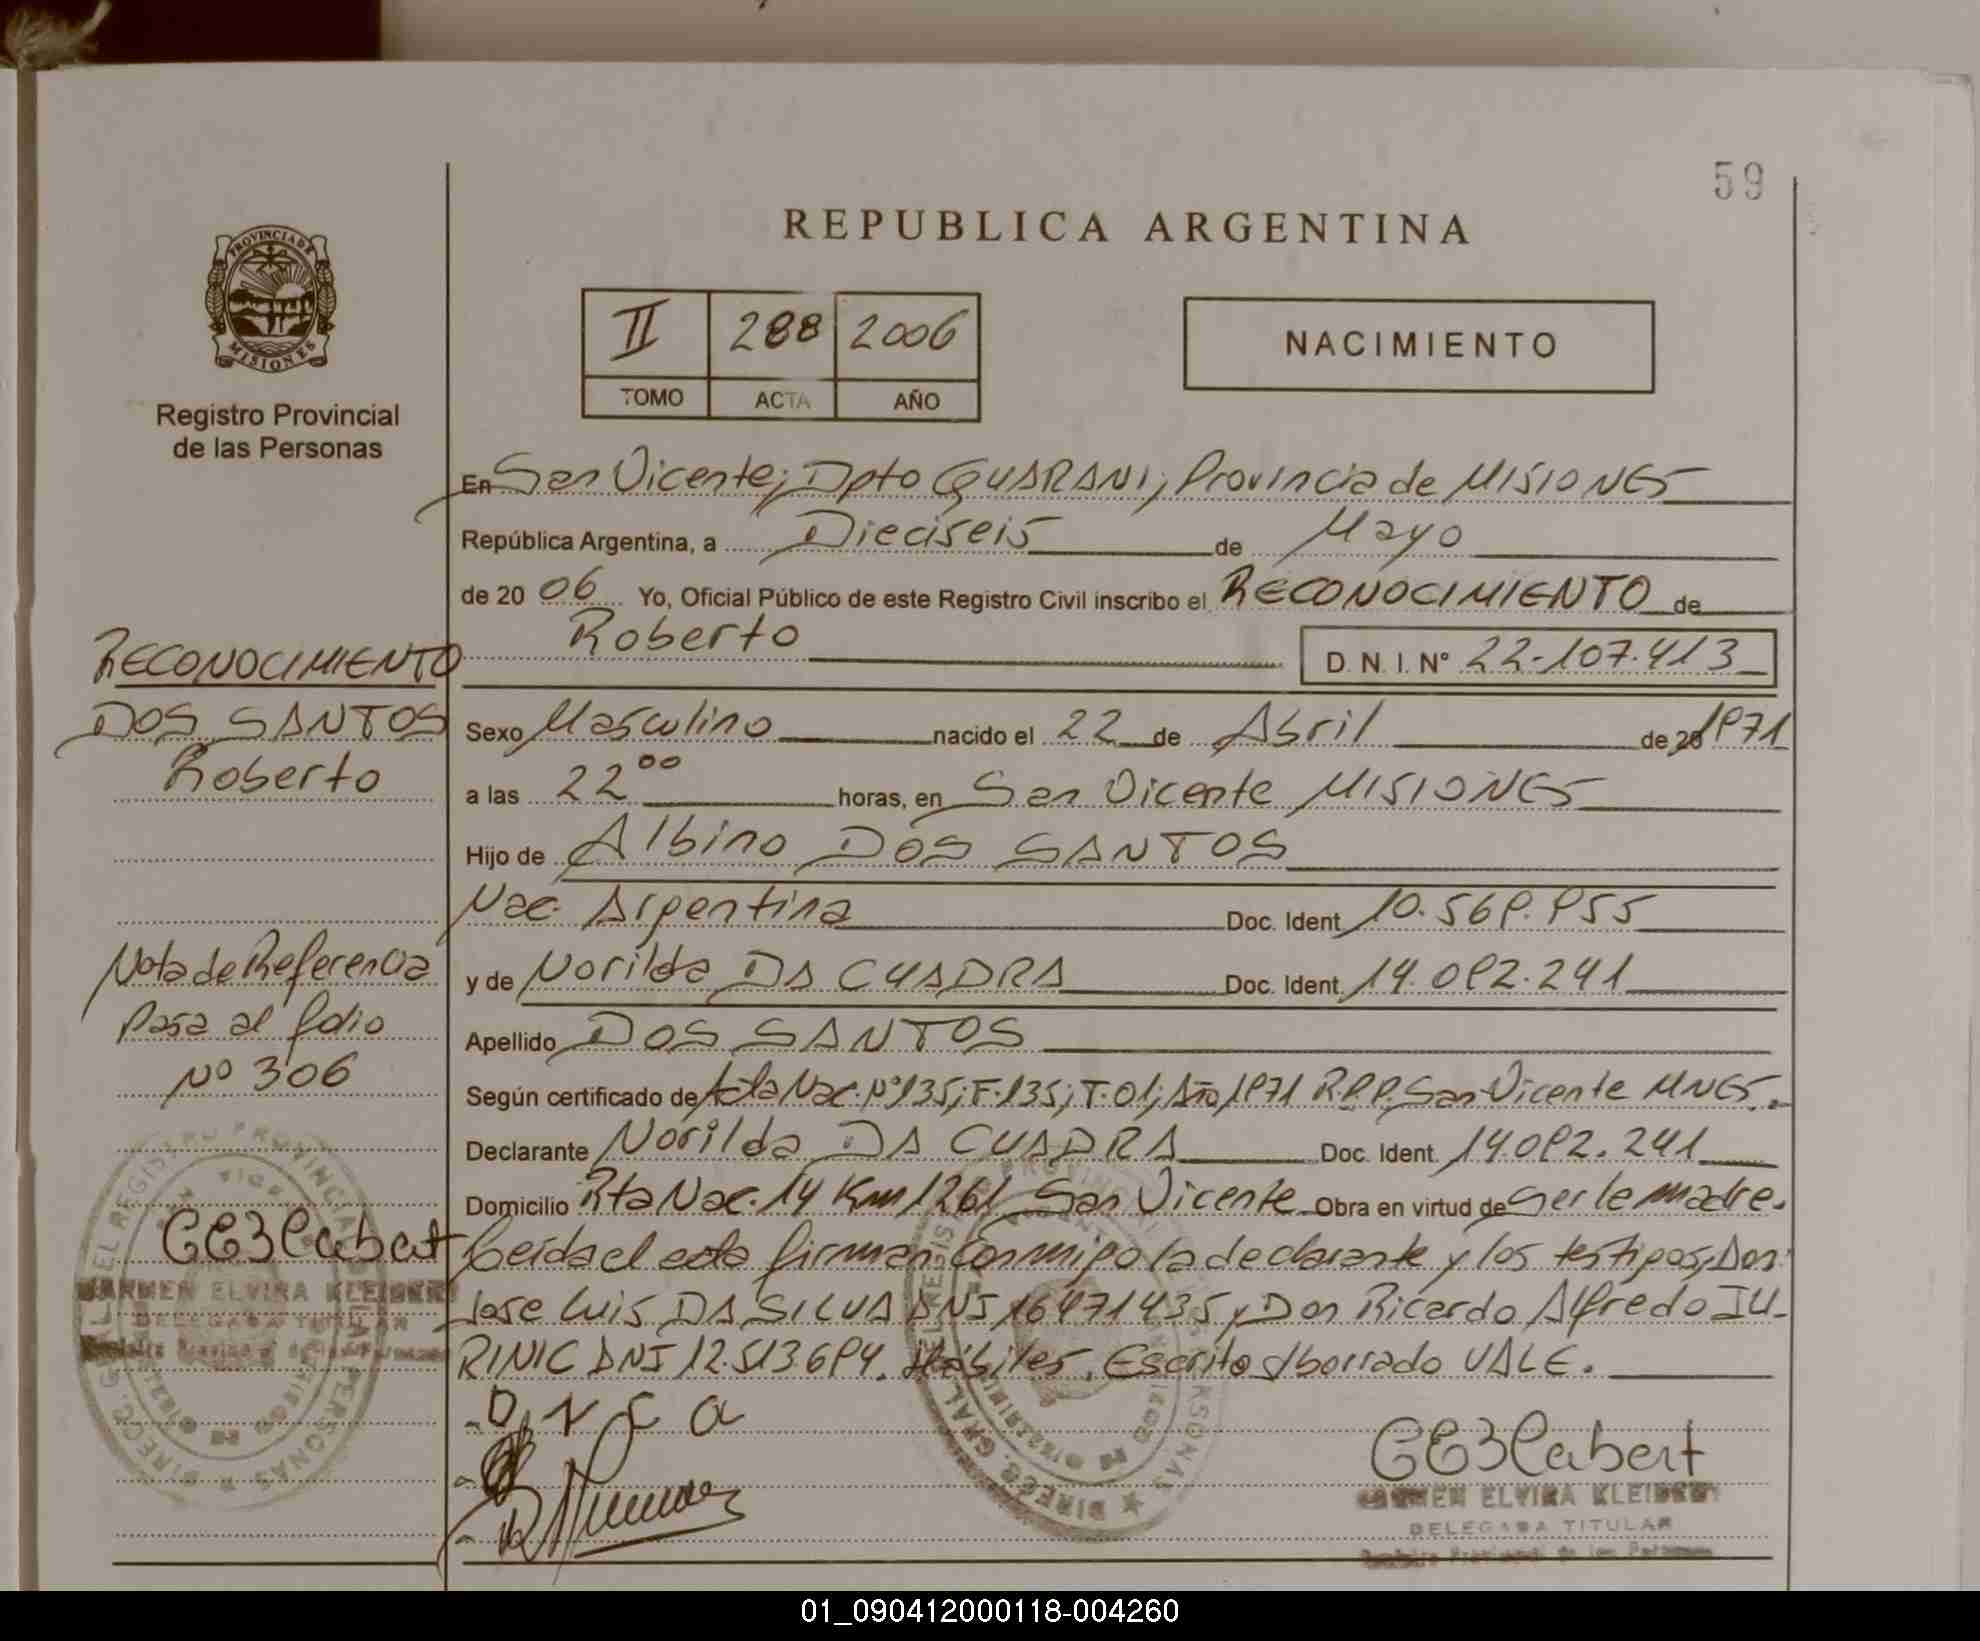 59
REPUBLICA ARGENTINA
PROVINCIA DE
MISIONES
Registro Provincial
de las Personas
II 288 2006
TOMO ACTA AÑO
NACIMIENTO
En San Vicente; Dpto GUARANI; Provincia de MISIONES
República Argentina, a Dieciseis de Mayo
de 20 06 Yo, Oficial Público de este Registro Civil inscribo el RECONOCIMIENTO de
Roberto D. N. I. N° 22.107.413
Sexo Masculino nacido el 22 de Abril de 20 1971
a las 22 00 horas, en San Vicente MISIONES
Hijo de Albino DOS SANTOS
Nac. Argentina Doc. Ident. 10.569.955
y de Norilda DA CUADRA Doc. Ident. 14.092.241
Apellido DOS SANTOS
Según certificado de Acta Nac. Nº 135; F. 135; T. 01; Año 1971 R.P.P. San Vicente MNES.
Declarante Norilda DA CUADRA Doc. Ident. 14.092.241
Domicilio Rta Nac. 14 Km 1261 San Vicente Obra en virtud de Ser la madre.
Leída el acta firman conmigo la declarante y los testigos, Don
Jose Luis DA SILVA DNI 16471435 y Don Ricardo Alfredo IU-
RINIC DNI 12.513.694. Hábiles. Escrito s/borrado VALE.
RECONOCIMIENTO
DOS SANTOS
Roberto
Nota de Referencia
Pasa al folio
Nº 306
CARMEN ELVIRA
DELEGADA TITULAR
CARMEN ELVIRA
DELEGADA TITULAR
Registro Provincial de las Personas
01_090412000118-004260